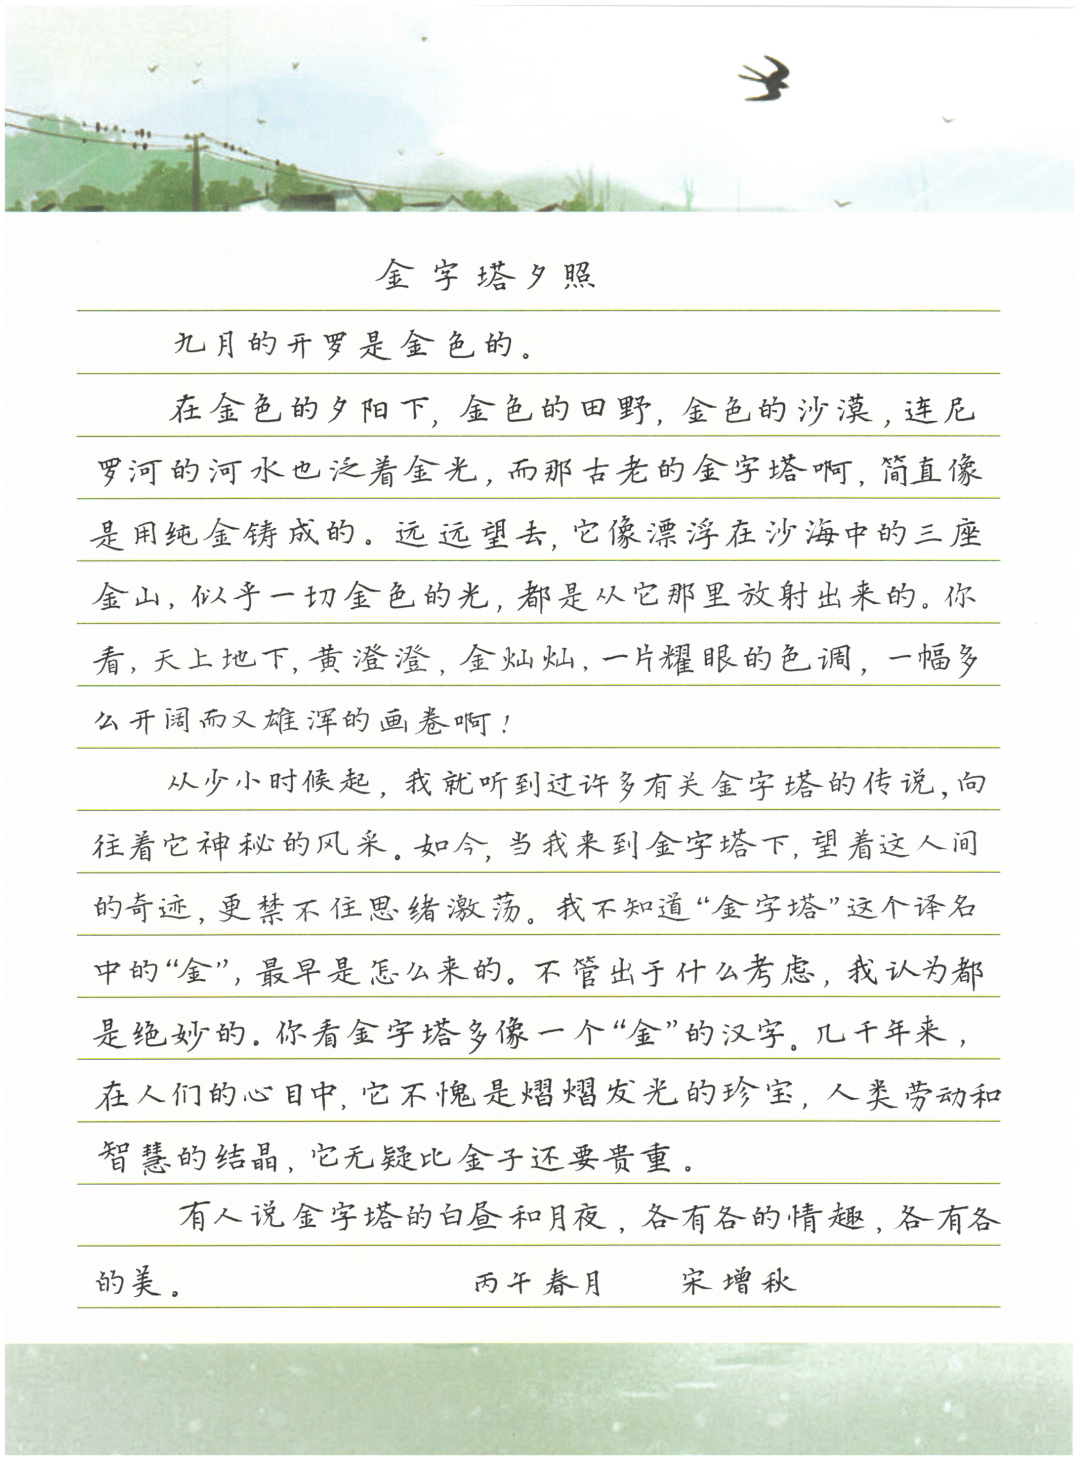 金字塔夕照
九月的开罗是金色的。
在金色的夕阳下,金色的田野,金色的沙漠,连尼
罗河的河水也泛着金光,而那古老的金字塔啊,简直像
是用纯金铸成的。远远望去,它像漂浮在沙海中的三座
金山,似乎一切金色的光,都是从它那里放射出来的。你
看,天上地下,黄澄澄,金灿灿,一片耀眼的色调,一幅多
么开阔而又雄浑的画卷啊!
从少小时候起,我就听到过许多有关金字塔的传说,向
往着它神秘的风采。如今,当我来到金字塔下,望着这人间
的奇迹,更禁不住思绪激荡。我不知道“金字塔”这个译名
中的“金”,最早是怎么来的。不管出于什么考虑,我认为都
是绝妙的。你看金字塔多像一个“金”的汉字。几千年来,
在人们的心目中,它不愧是熠熠发光的珍宝,人类劳动和
智慧的结晶,它无疑比金子还要贵重。
有人说金字塔的白昼和月夜,各有各的情趣,各有各
的美。 丙午春月 宋增秋